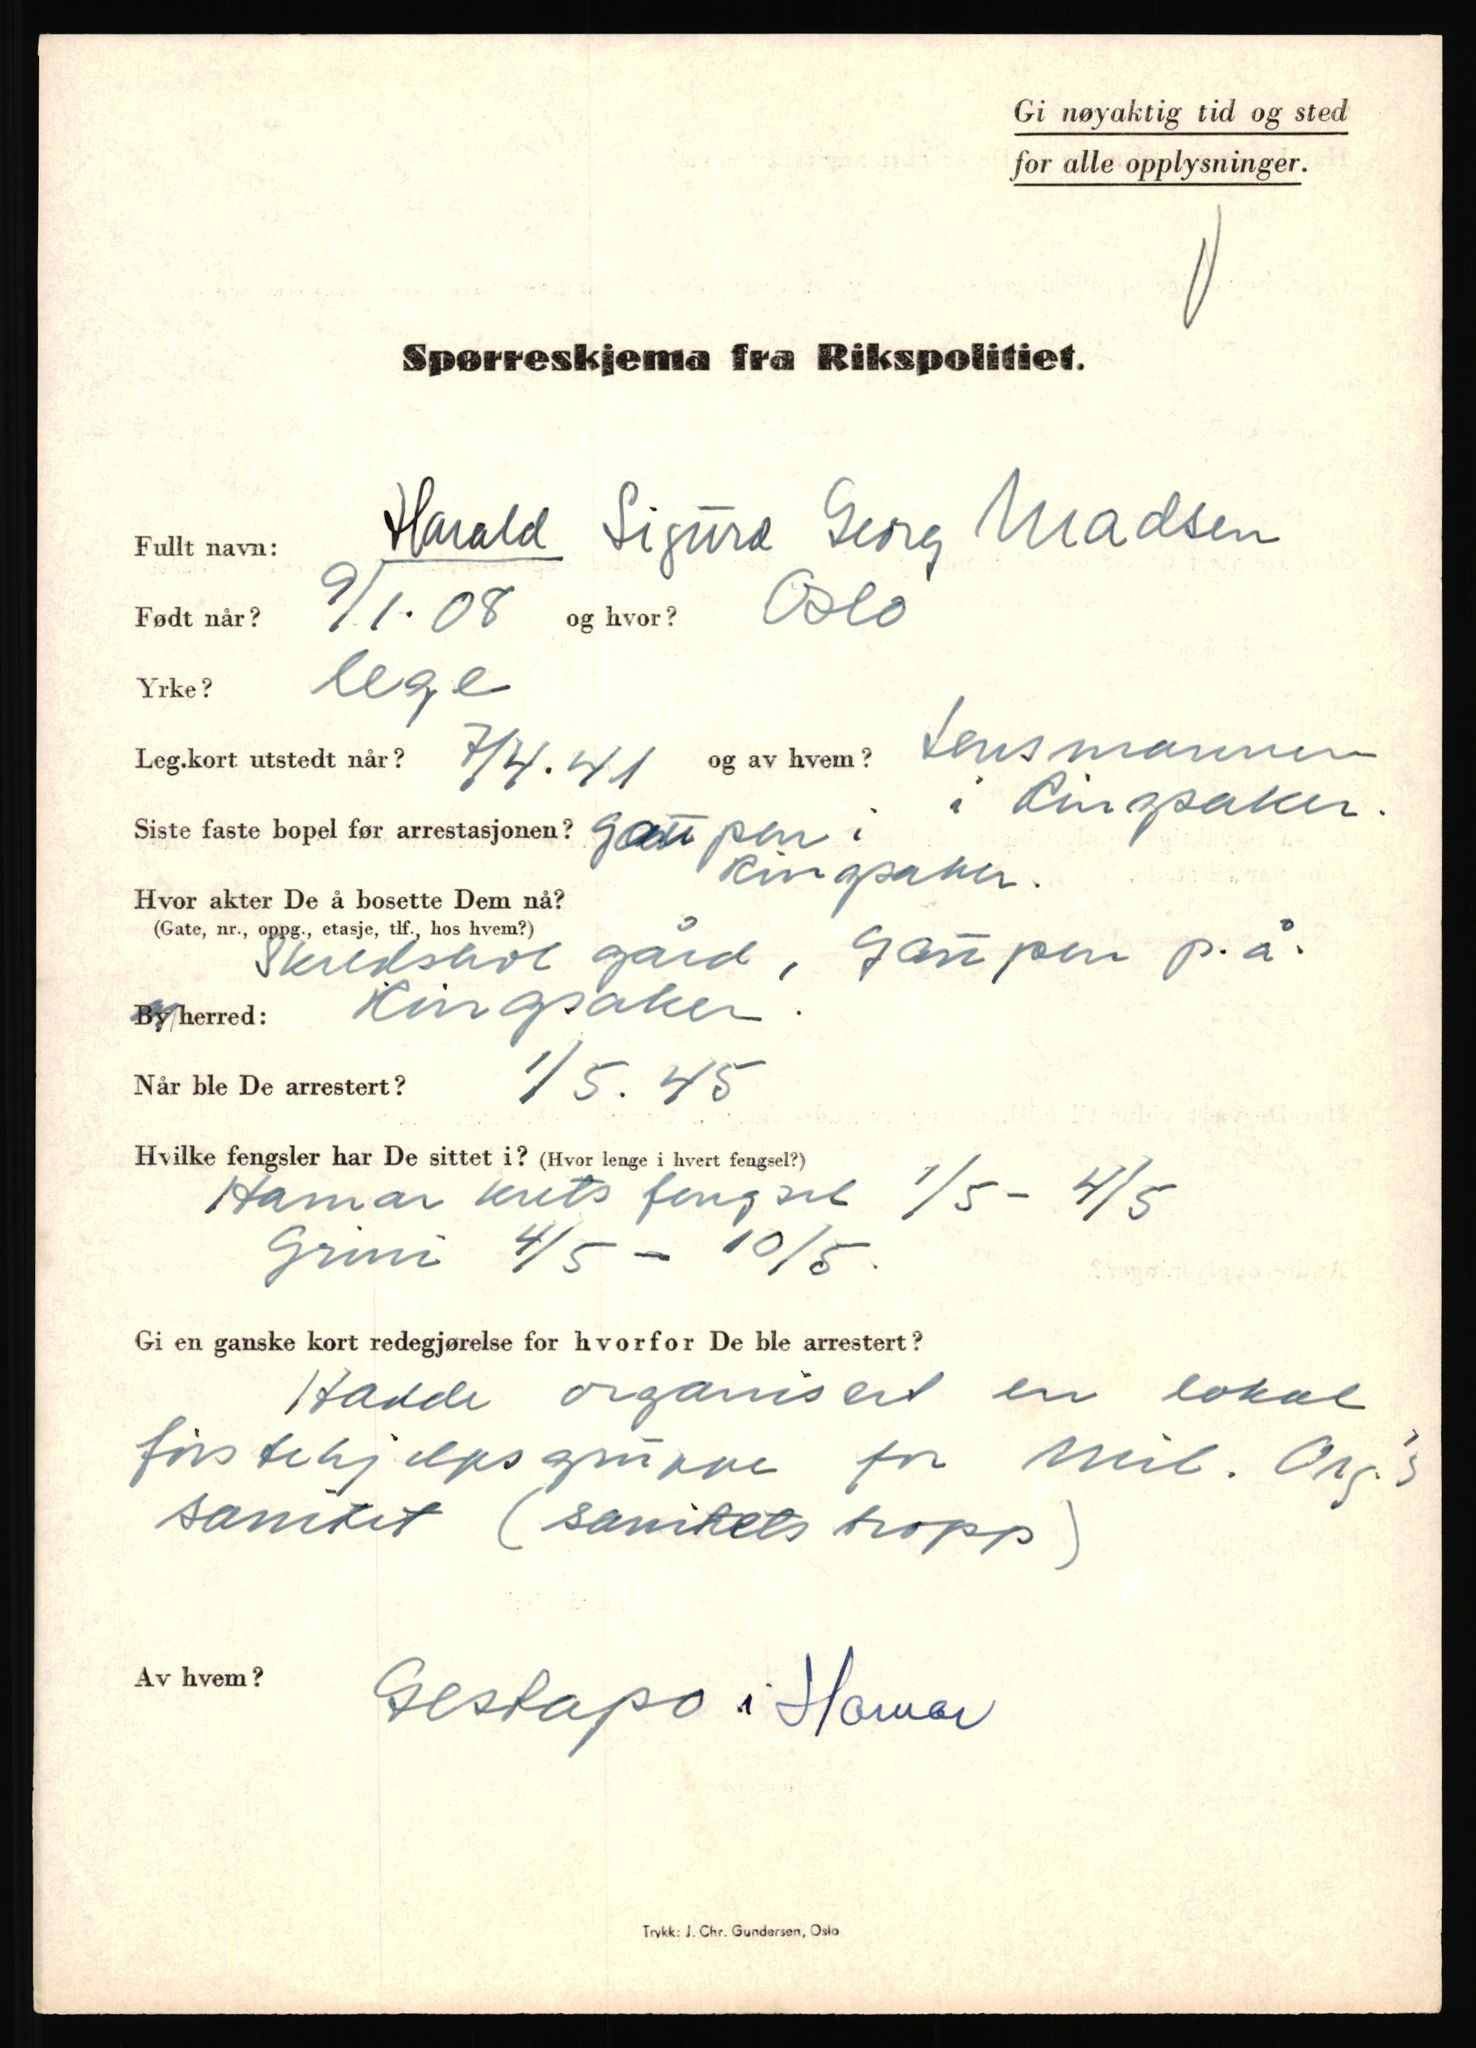 Gi nøyaktig tid og sted
for alle opplysninger.
Spørreskjema fra Rikspolitiet.
Fullt navn: Harald Sigurd Georg Madsen
Født når? 9/1.08 og hvor? Oslo
Yrke? lege
Leg.kort utstedt når? 7/4.41 og av hvem? Lensmannen
i Ringsaker.
Siste faste bopel før arrestasjonen? Gaupen i
Ringsaker.
Hvor akter De å bosette Dem nå?
(Gate, nr., oppg., etasje, tlf., hos hvem?)
Skredshol gård, Gaupen p.å.
By/herred: Ringsaker.
Når ble De arrestert? 1/5.45
Hvilke fengsler har De sittet i? (Hvor lenge i hvert fengsel?)
Hamar kretsfengsel 1/5 - 4/5
Grini 4/5 - 10/5.
Gi en ganske kort redegjørelse for hvorfor De ble arrestert?
Hadde organisert en lokal
førstehjelpsgruppe for Mil. Org.'s
sanitet (sanitetstropp)
Av hvem? Gestapo i Hamar
Trykk: J. Chr. Gundersen, Oslo